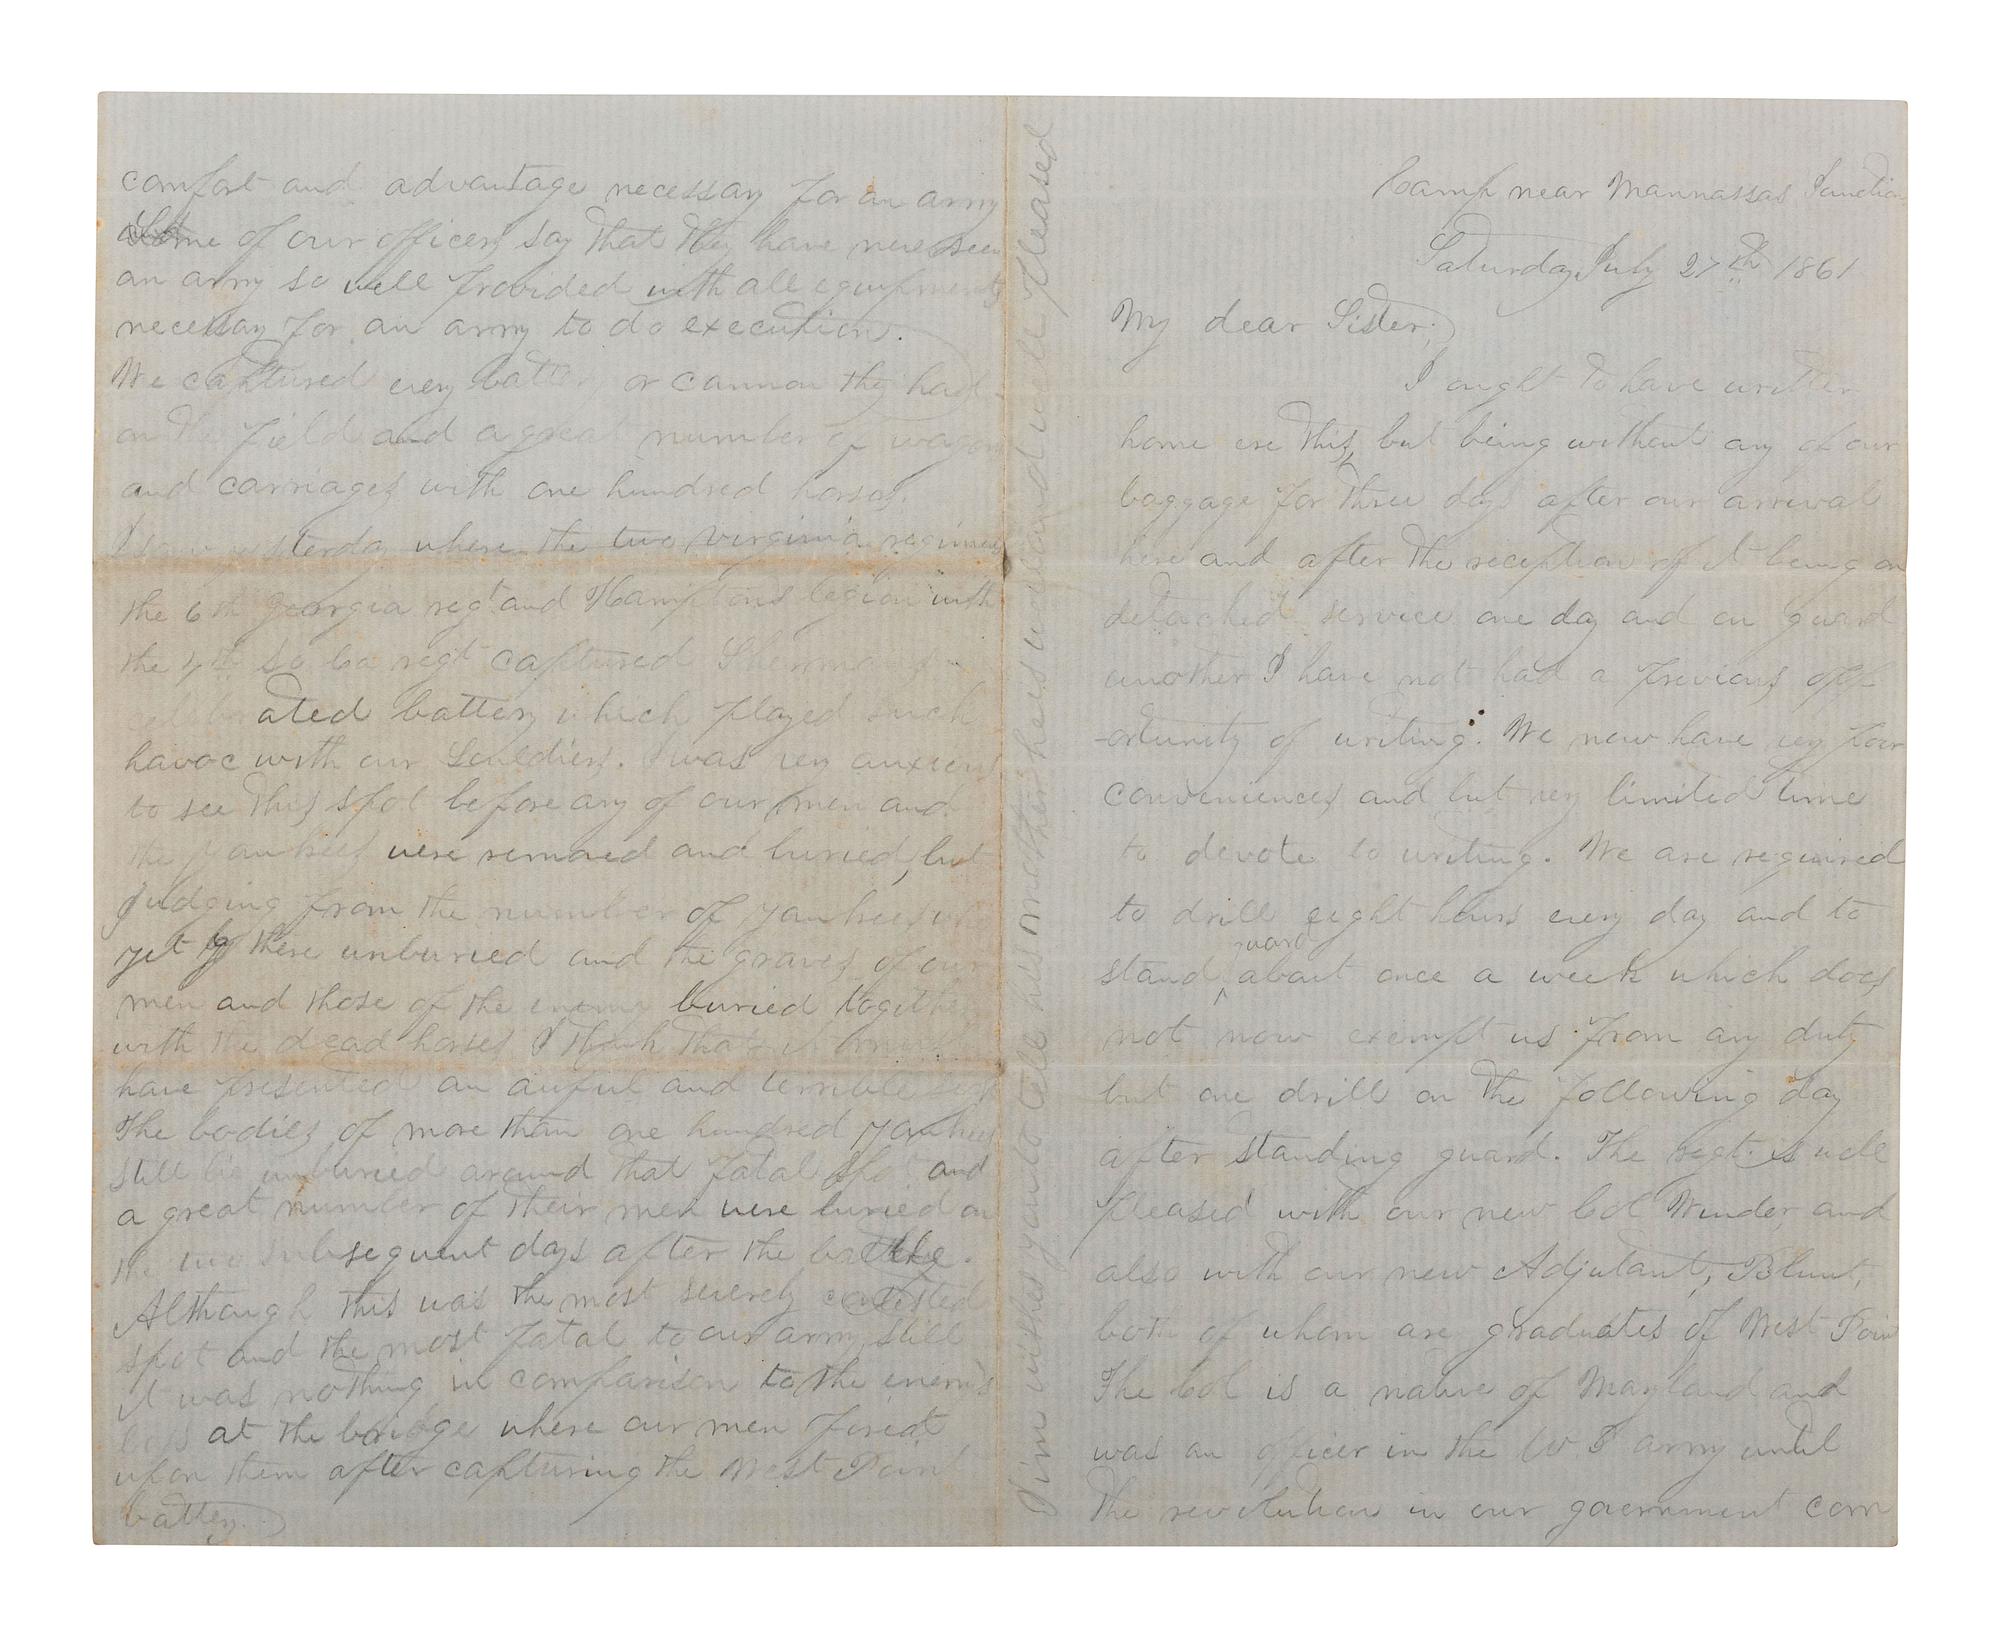 Camp near Mannassas Junction
Saturday July 27th 1861
My dear Sister;
I ought to have written
home ere this, but being without any of our
baggage for three days after our arrival
here and after the reception of it being on
detached service one day and on guard
another I have not had a previous opp
-ortunity of writing. We now have very poor
conveniences and but very limited time
to devote to writing. We are required
to drill eight hours every day and to
stand guard about once a week which does
not now exempt us from any duty
but one drill on the following day
after standing guard. The regt. is well
pleased with our new Col Winder, and
also with our new Adjutant, Blunt,
both of whom are graduates of West Poin
The Col is a native of Maryland and
was an officer in the U S army until
the revolution in our government com
Jim wishes you to tell his mother he is well and well pleased
comfort and advantage necessary for an army
Some of our officers say that they have never seen
an army so well provided with all equipments
necessary for an army to do execution.
We captured every battery or cannon they had
on the field and a great number of wagons
and carriages with one hundred horses.
I saw yesterday where the two Virginia regiments
the 6th Georgia regt and Hamptons legion with
the 4th So Ca regt captured Shermans
celebrated battery which played such
havoc with our Souldiers. I was very anxious
to see this spot before any of our men and
the yankees were removed and buried, but
judging from the number of yankees
yet there unburied and the graves of our
men and those of the enemy buried together
with the dead horses I think that it must
have presented an awful and terrible
The bodies of more than one hundred yankees
still lie unburied around that fatal spot and
a great number of their men were buried on
the two subsequent days after the battle.
Although this was the most severely contested
spot and the most fatal to our army still
it was nothing in comparison to the enemy's
loss at the bridge where our men fired
upon them after capturing the West Point
battery.